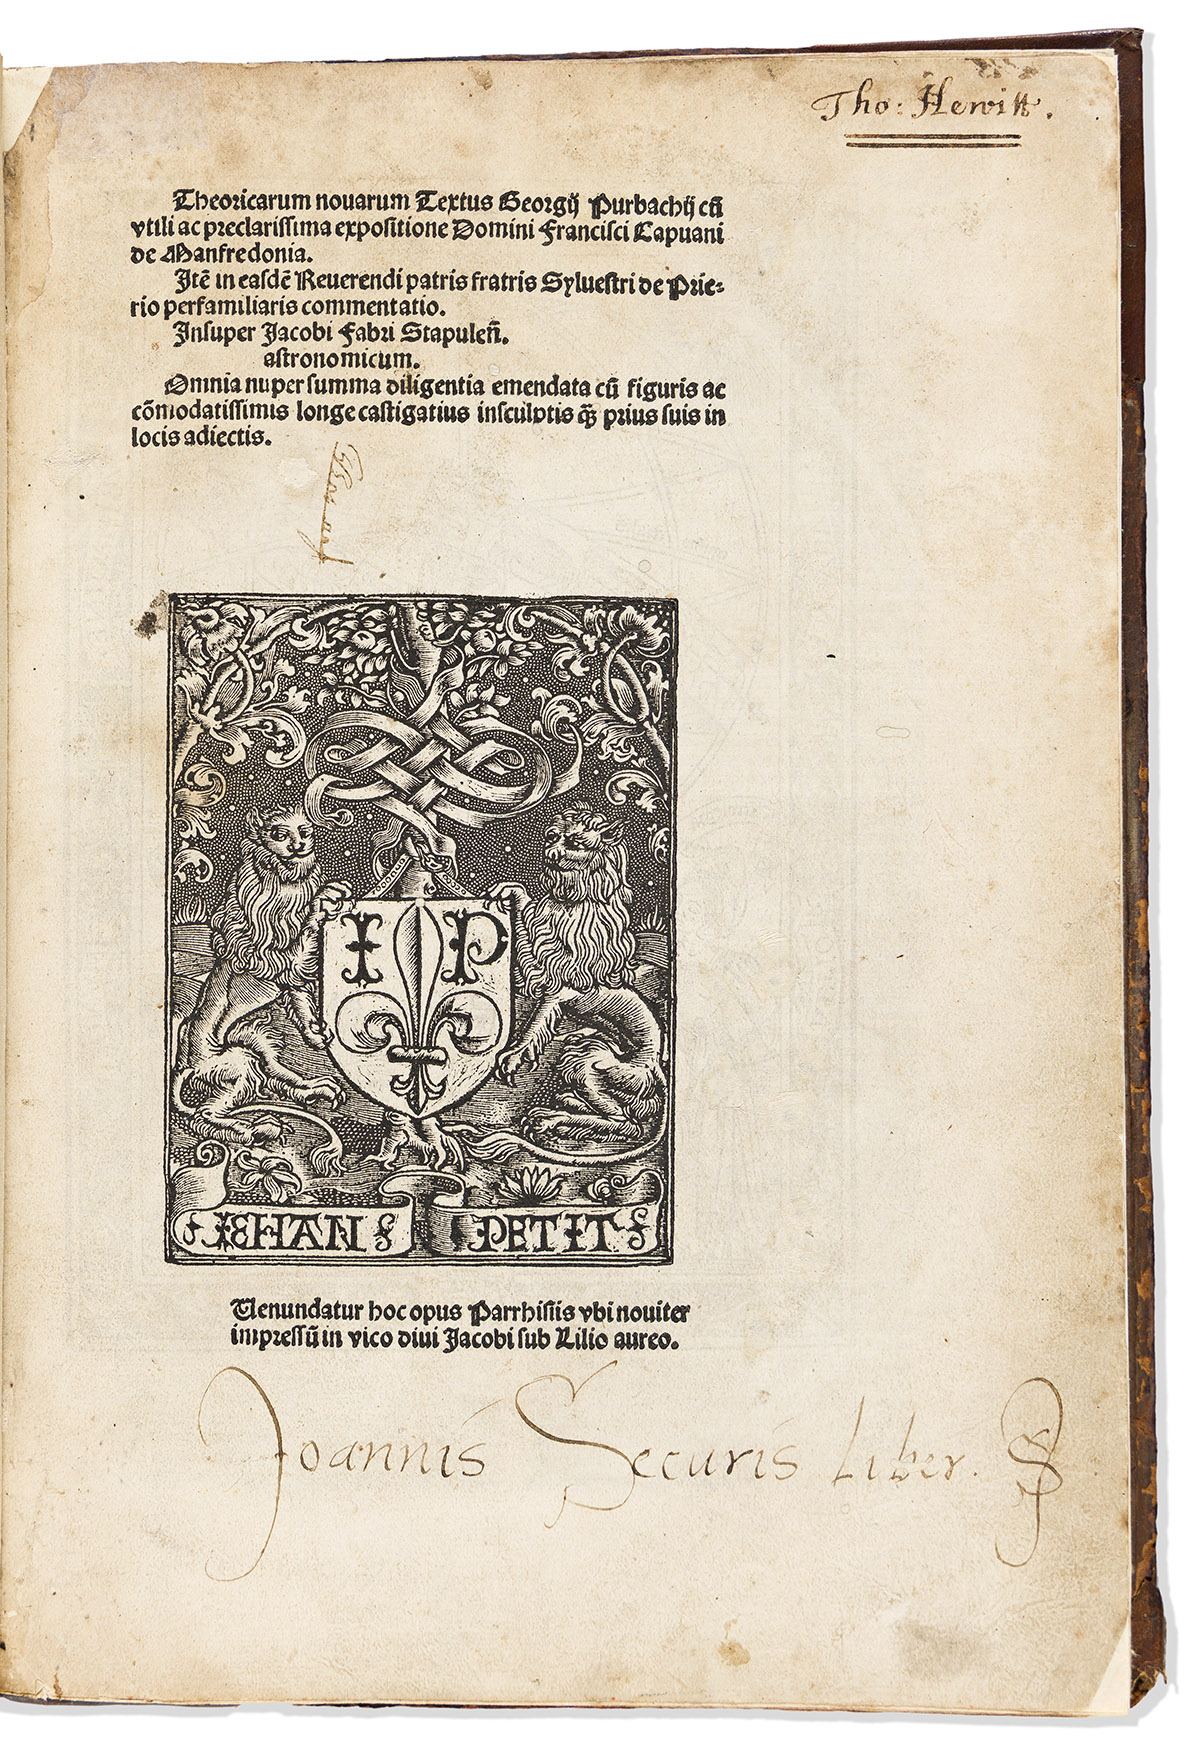 Tho: Hewitt.
Theoricarum novarum Textus Georgij Purbachij cũ
vtili ac preclarissima expositione Domini Francisci Capuani
de Manfredonia.
Itẽ in easdẽ Reuerendi patris fratris Sylvestri de Prie-
rio perfamiliaris commentatio.
Insuper Jacobi Fabri Stapuleñ.
astronomicum.
Omnia nuper summa diligentia emendata cũ figuris ac
cõmodatissimis longe castigatius insculptis q̃ʒ prius suis in
locis adiectis.
I P
IEHAN PETIT
Uenundatur hoc opus Parrhisiis vbi noviter
impressũ in vico divi Jacobi sub Lilio aureo.
Joannis Securis Liber. JS